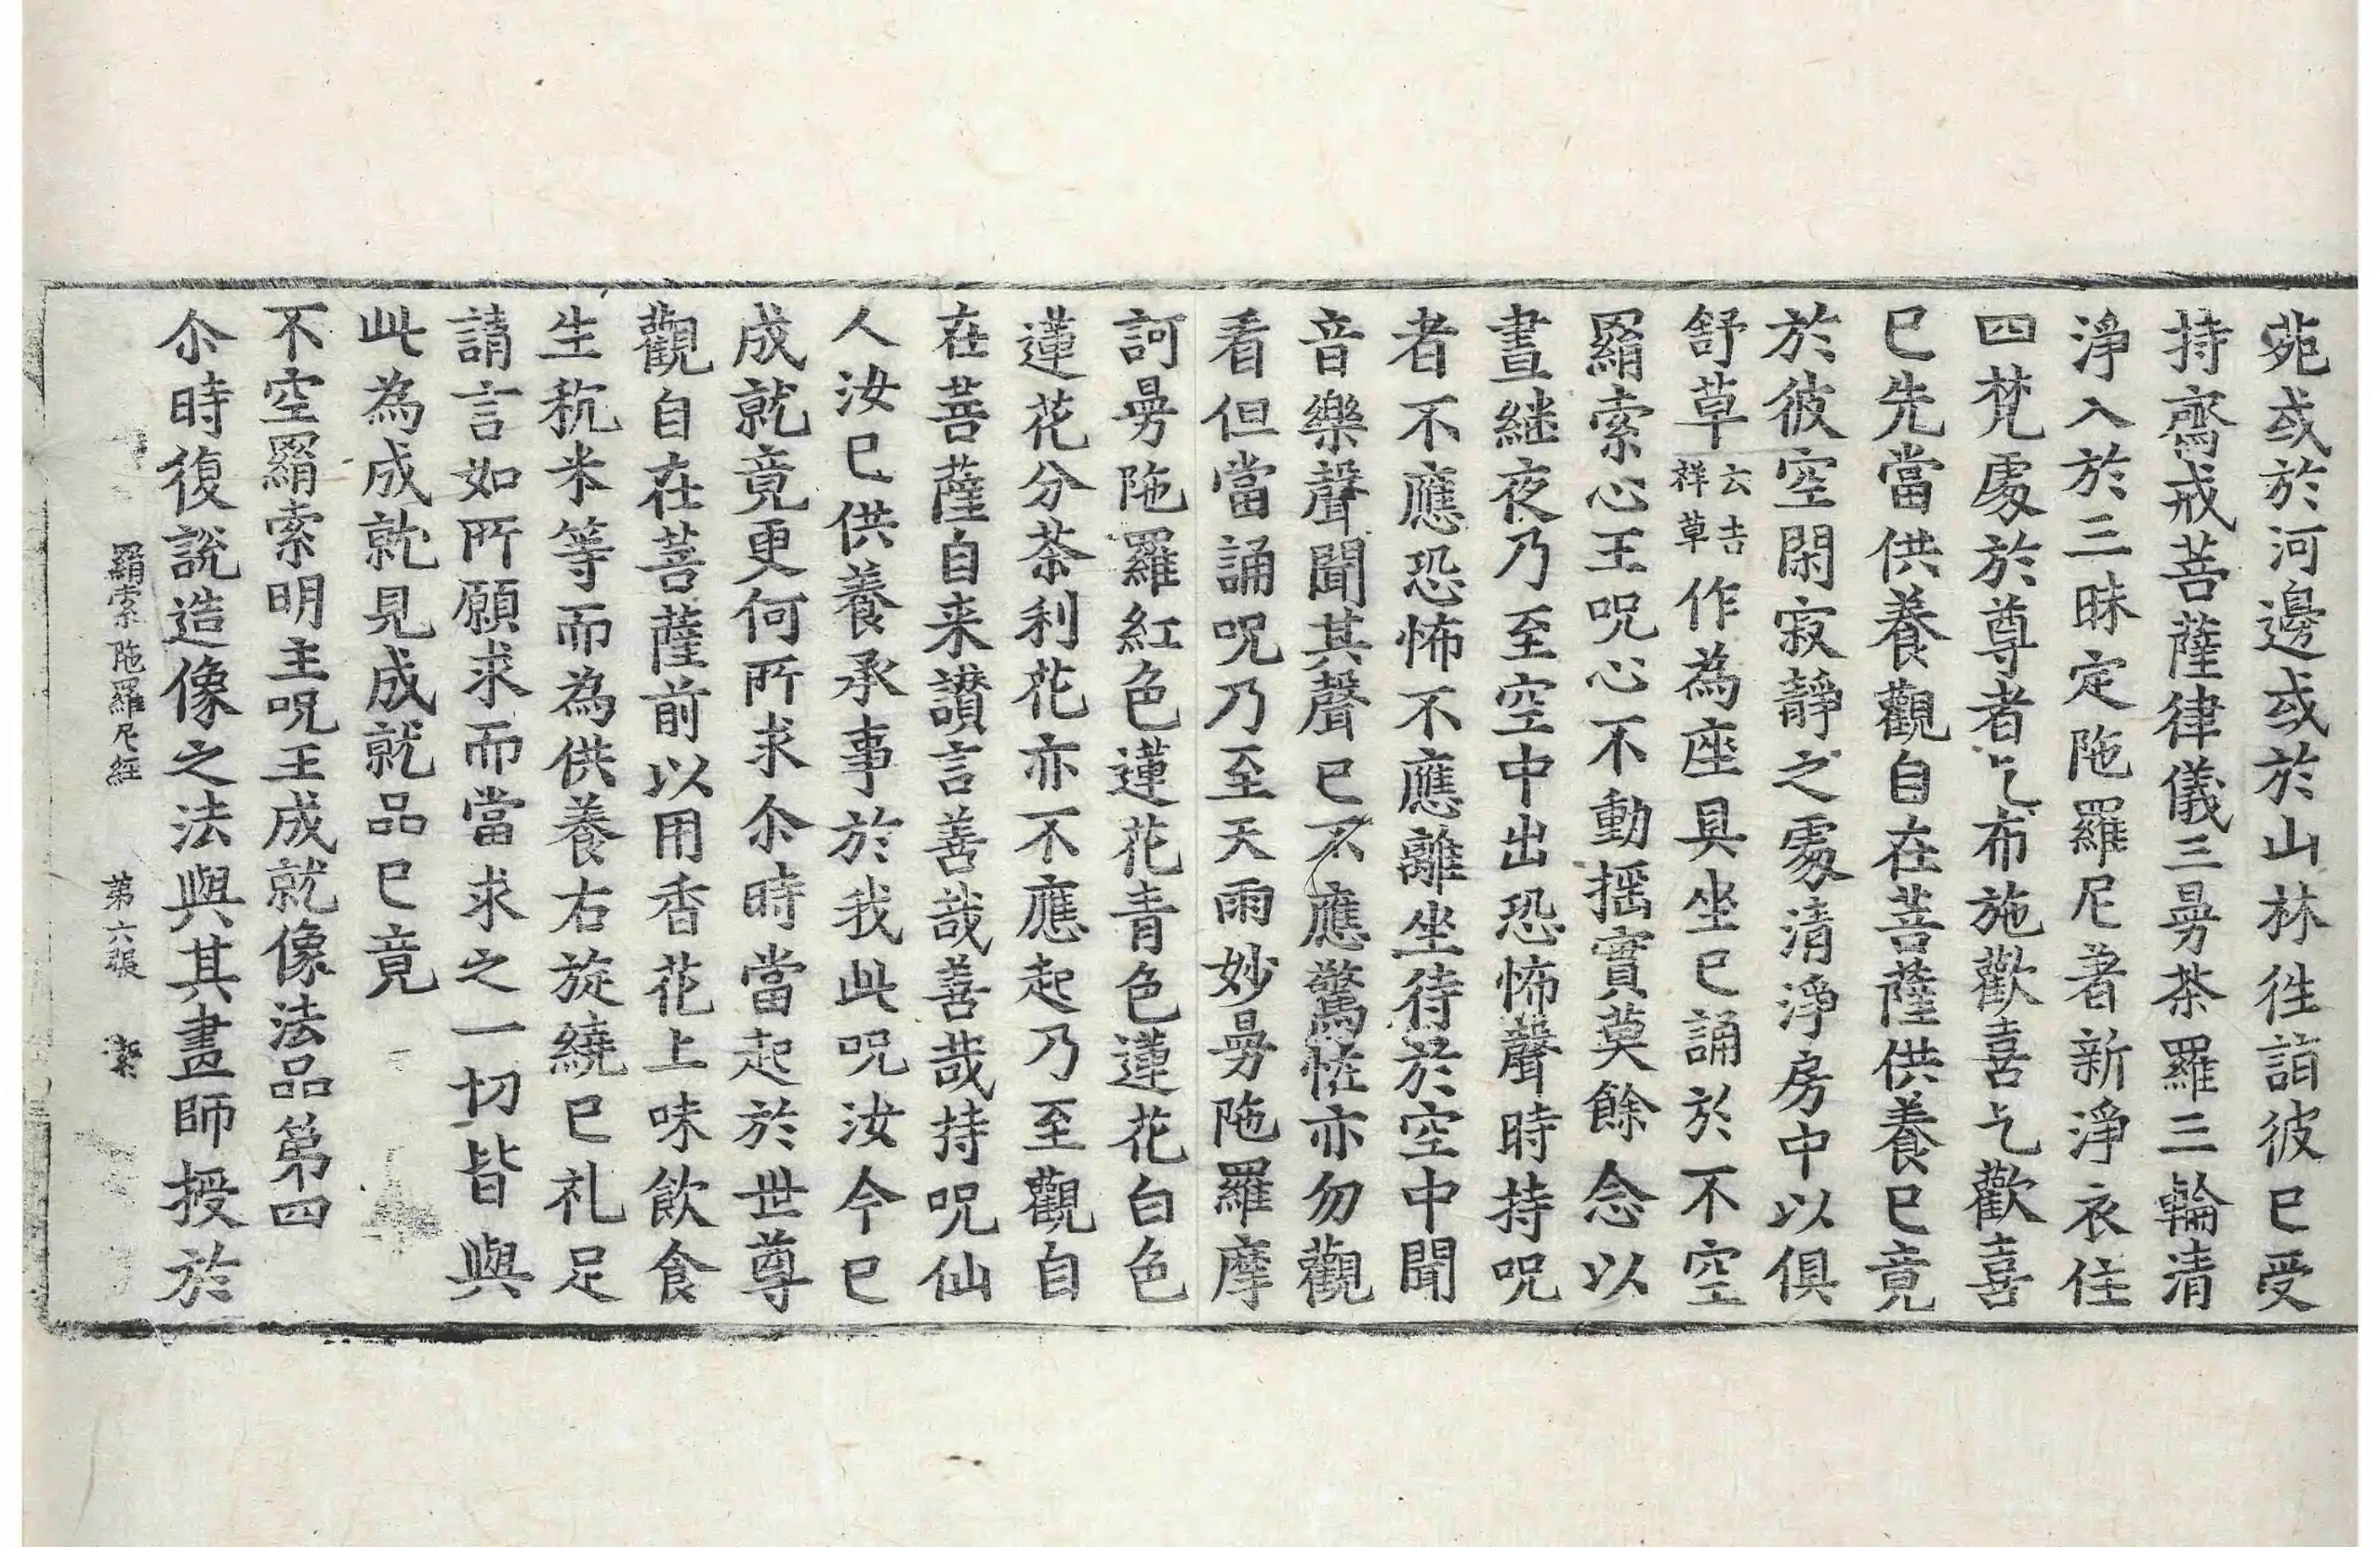 苑或於河邊或於山林徃詣彼已受
持齋戒菩薩律儀三曼茶羅三輪清
淨入於三昧定陁羅尼著新淨衣住
四梵處於尊者乞布施歡喜乞歡喜
已先當供養觀自在菩薩供養已竟
於彼空閑寂靜之處清淨房中以俱
舒草云吉祥草作為座具坐已誦於不空
羂索心王呪心不動揺實莫餘念以
晝継夜乃至空中出恐怖聲時持呪
者不應恐怖不應離坐待於空中聞
音樂聲聞其聲已不應驚恠亦勿觀
看但當誦呪乃至天雨妙曼陁羅摩
訶曼陁羅紅色蓮花青色蓮花白色
蓮花分茶利花亦不應起乃至觀自
在菩薩自来讃言善哉善哉持呪仙
人汝已供養承事於我此呪汝今已
成就竟更何所求尒時當起於世尊
觀自在菩薩前以用香花上味飲食
生秔米等而為供養右旋繞已礼足
請言如所願求而當求之一切皆與
此為成就見成就品已竟
不空羂索明主呪王成就像法品第四
尒時復說造像之法與其畫師授於
羂索陁羅尼經 第六張